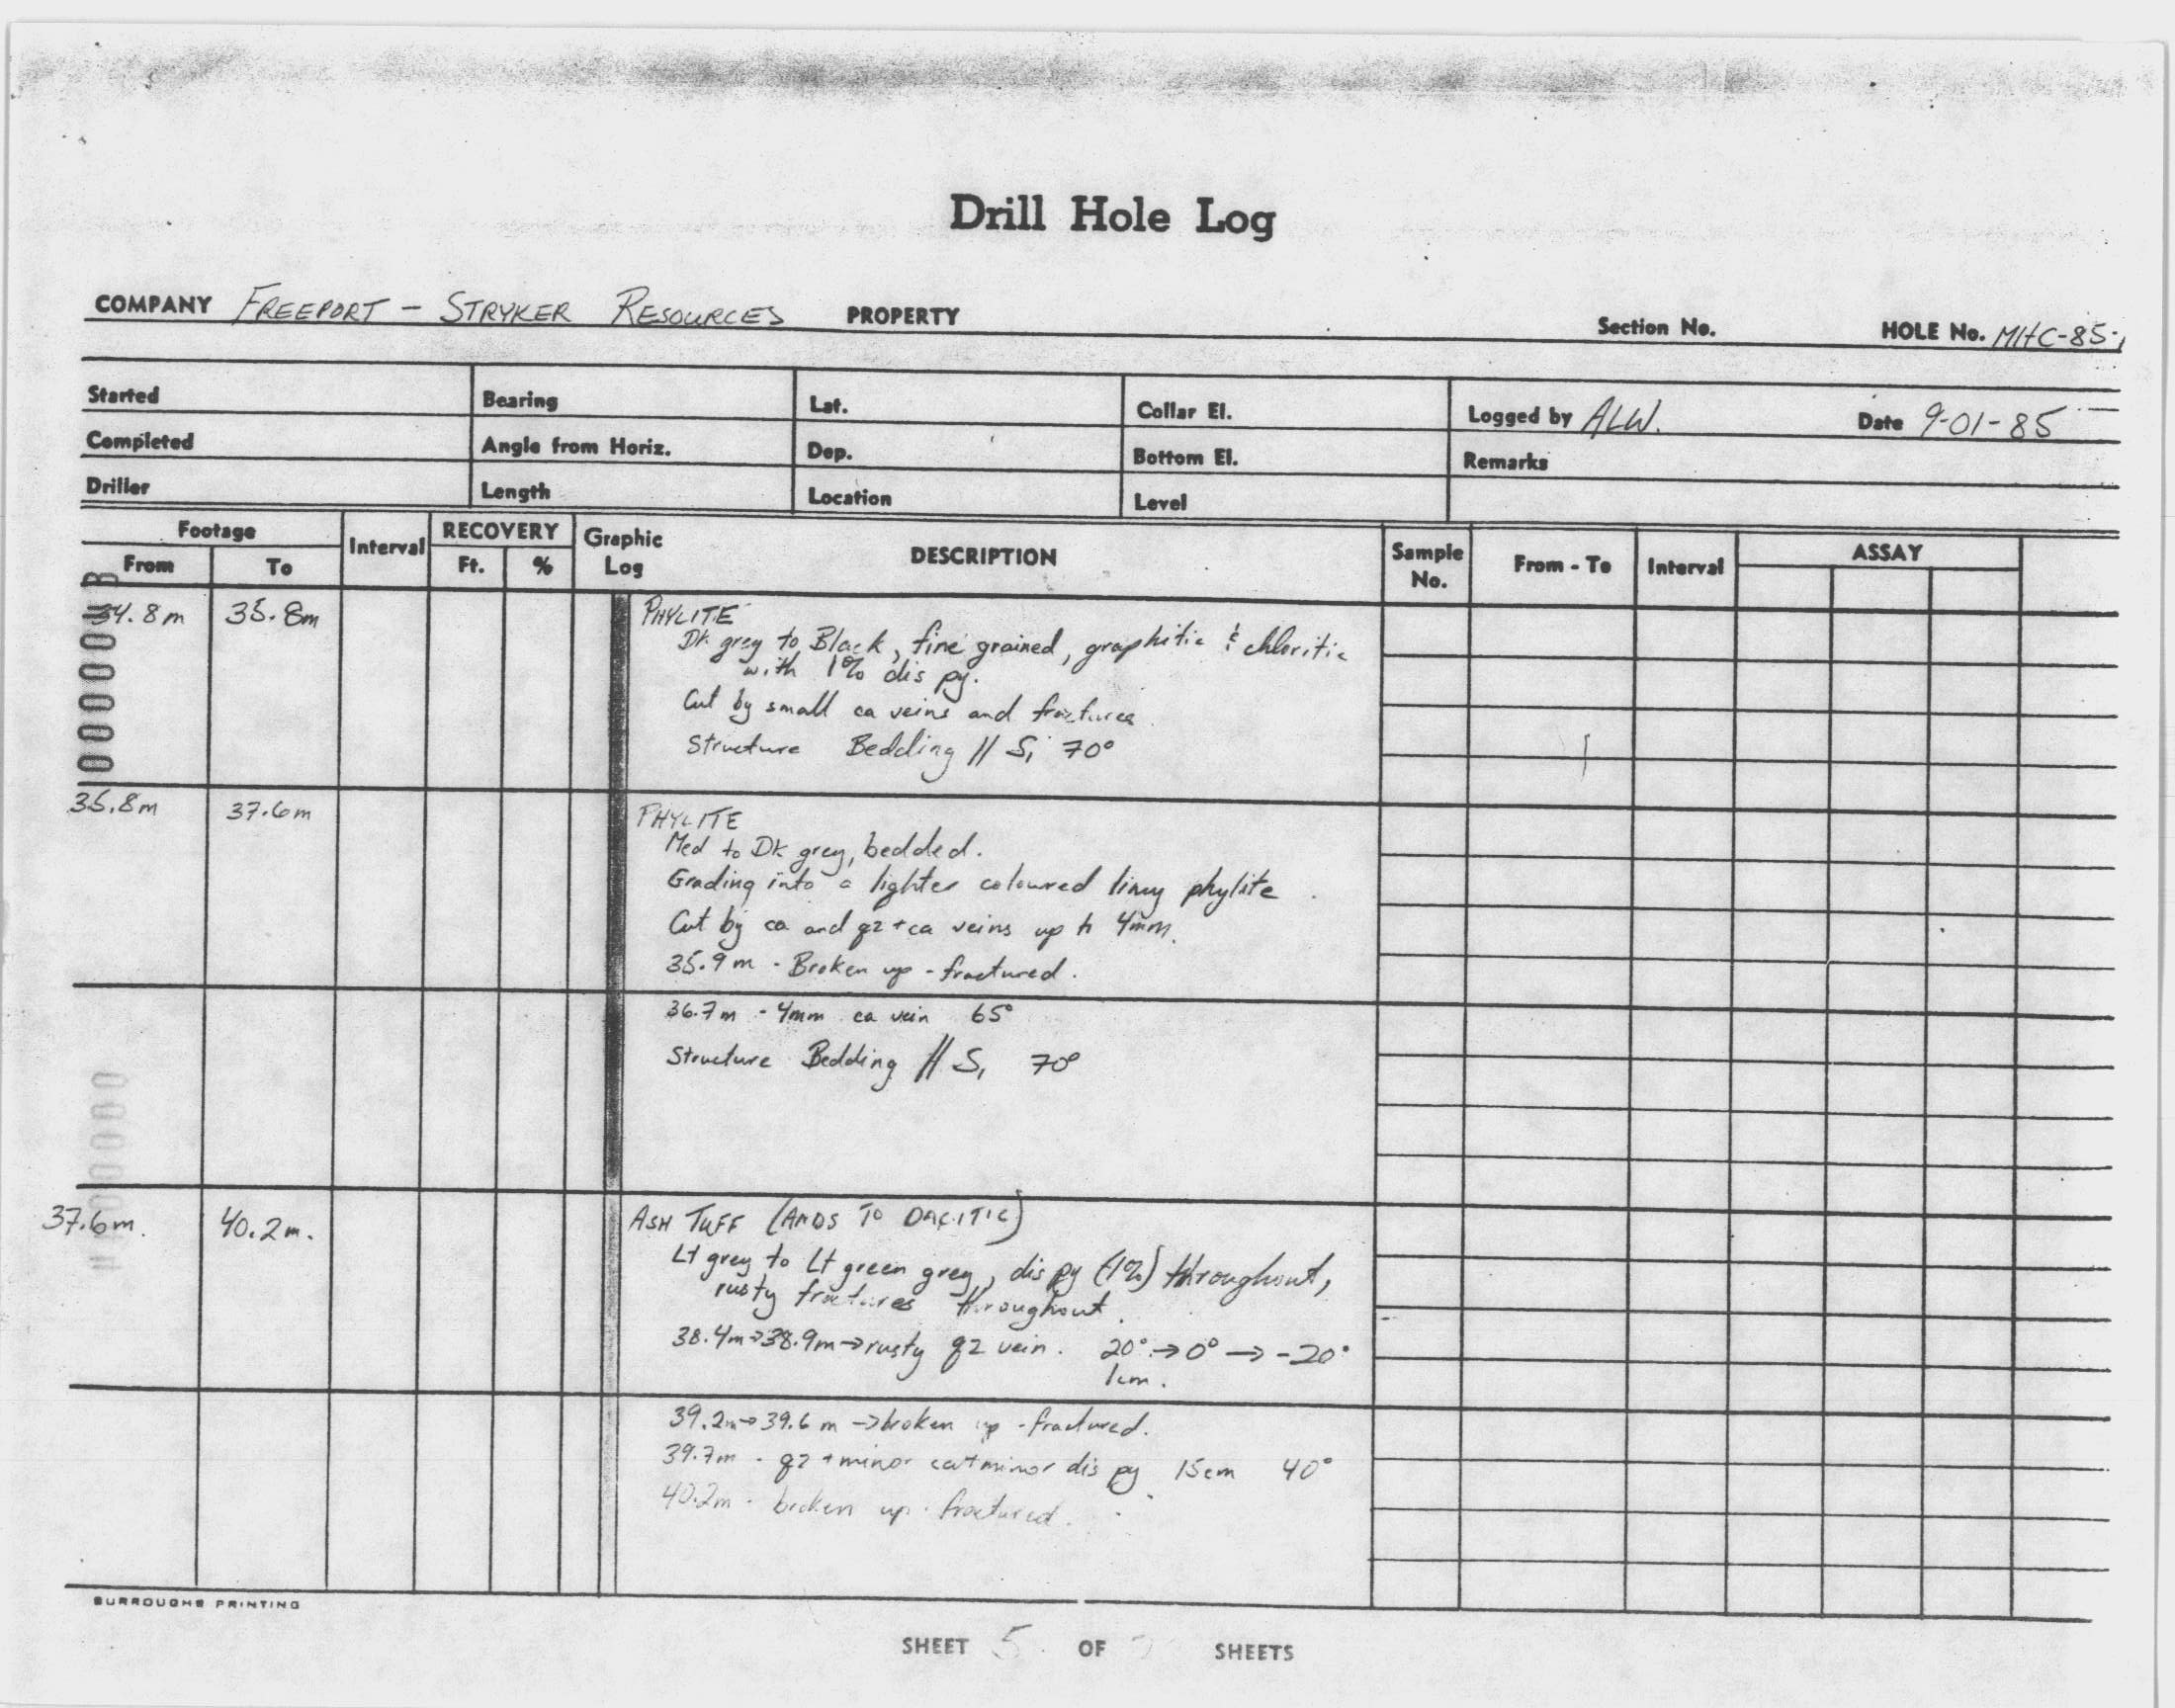 Drill Hole Log
COMPANY FREEPORT - STRYKER RESOURCES PROPERTY Section No. HOLE No. MHC-85-1
Started Bearing Lat. Collar El. Logged by ALW. Date 9-01-85
Completed Angle from Horiz. Dep. Bottom El. Remarks
Driller Length Location Level
Footage Interval RECOVERY Graphic Log DESCRIPTION Sample No. From - To Interval ASSAY
From To Ft. %
34.8m 35.8m PHYLITE
Dk grey to Black, fine grained, graphitic & chloritic
with 1% dis py.
Cut by small ca veins and fractures.
Structure Bedding // S1 70°
35.8m 37.6m PHYLITE
Med to Dk grey, bedded.
Grading into a lighter coloured limy phylite.
Cut by ca and qz+ca veins up to 4mm.
35.9m - Broken up - fractured.
36.7m - 4mm ca vein 65°
Structure Bedding // S1 70°
37.6m. 40.2m. ASH TUFF (ANDS TO DACITIC)
Lt grey to Lt green grey, dis py (1%) throughout,
rusty fractures throughout.
38.4m→38.9m→rusty qz vein. 20°→0°→-20°
1cm.
39.2m→39.6m→broken up - fractured.
39.7m - qz + minor ca + minor dis py 15cm 40°
40.2m - broken up - fractured.
BURROUGHS PRINTING
SHEET 5 OF SHEETS